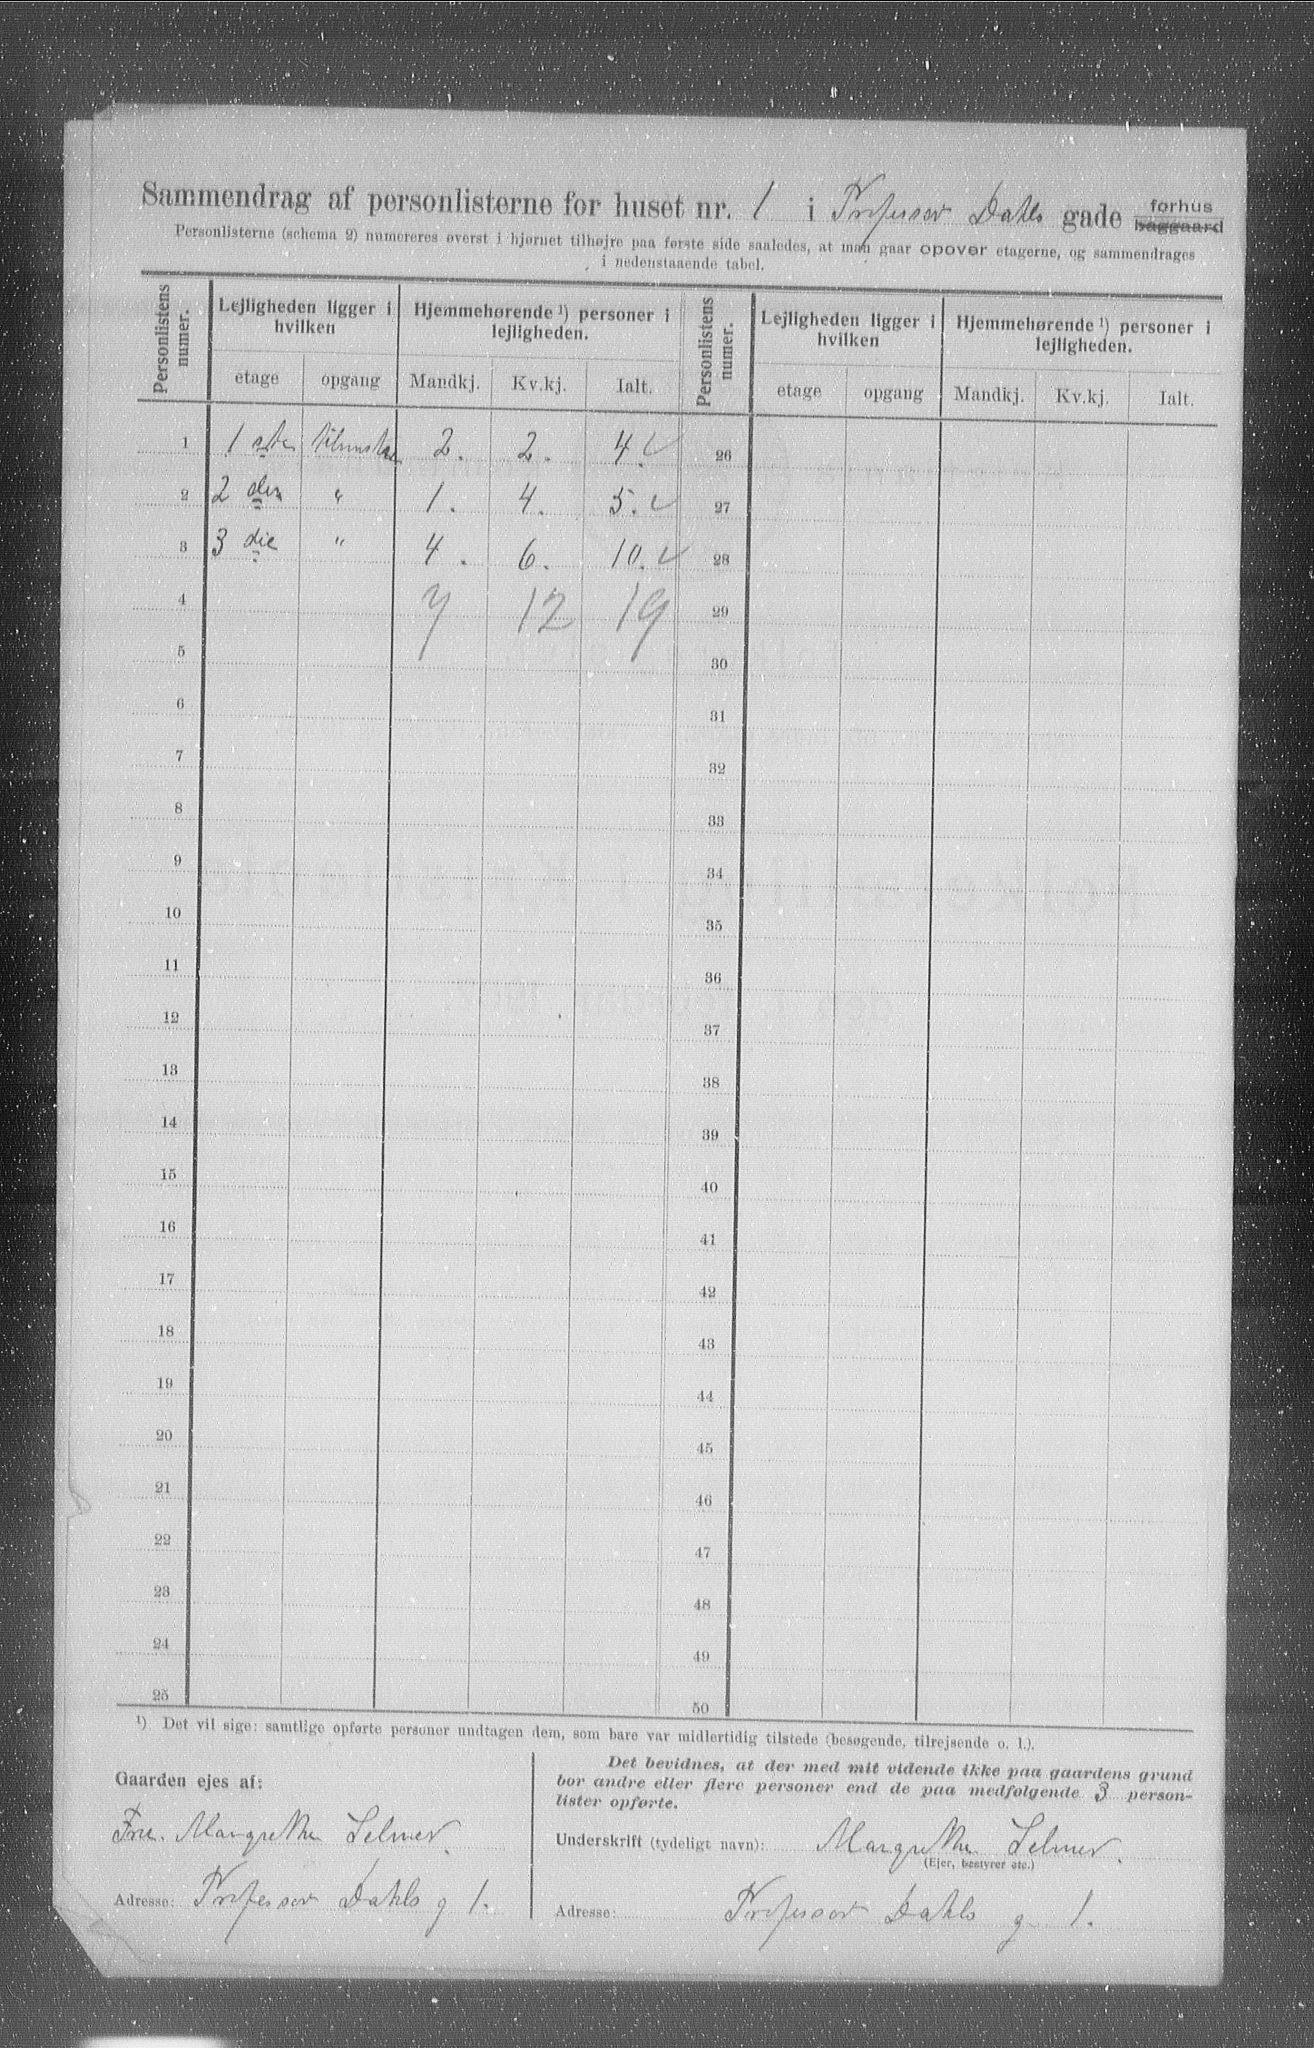 Sammendrag af personlisterne for huset nr. 1 i Professor Dahls gade forhus baggaard
Personlisterne (schema 2) numereres øverst i hjørnet tilhøjre paa første side saaledes, at man gaar opover etagerne, og sammendrages
i nedenstaaende tabel.
Personlistens numer. Lejligheden ligger i hvilken Hjemmehørende ¹) personer i lejligheden. Personlistens numer. Lejligheden ligger i hvilken Hjemmehørende ¹) personer i lejligheden.
etage opgang Mandkj. Kv.kj. Ialt. etage opgang Mandkj. Kv.kj. Ialt.
1 1 ste 2. 2. 4. ✓ 26
2 2 den " 1. 4. 5. ✓ 27
3 3 die " 4. 6. 10. ✓ 28
4 7 12 19 29
5 30
6 31
7 32
8 33
9 34
10 35
11 36
12 37
13 38
14 39
15 40
16 41
17 42
18 43
19 44
20 45
21 46
22 47
23 48
24 49
25 50
¹) Det vil sige: samtlige opførte personer undtagen dem, som bare var midlertidig tilstede (besøgende, tilrejsende o. l.).
Gaarden ejes af:
Frue. Margrethe Selmer.
Adresse: Professor Dahls g 1.
Det bevidnes, at der med mit vidende ikke paa gaardens grund
bor andre eller flere personer end de paa medfølgende 3 person-
lister opførte.
Underskrift (tydeligt navn): Margrethe Selmer.
(Ejer, bestyrer etc.)
Adresse: Professor Dahls g 1.